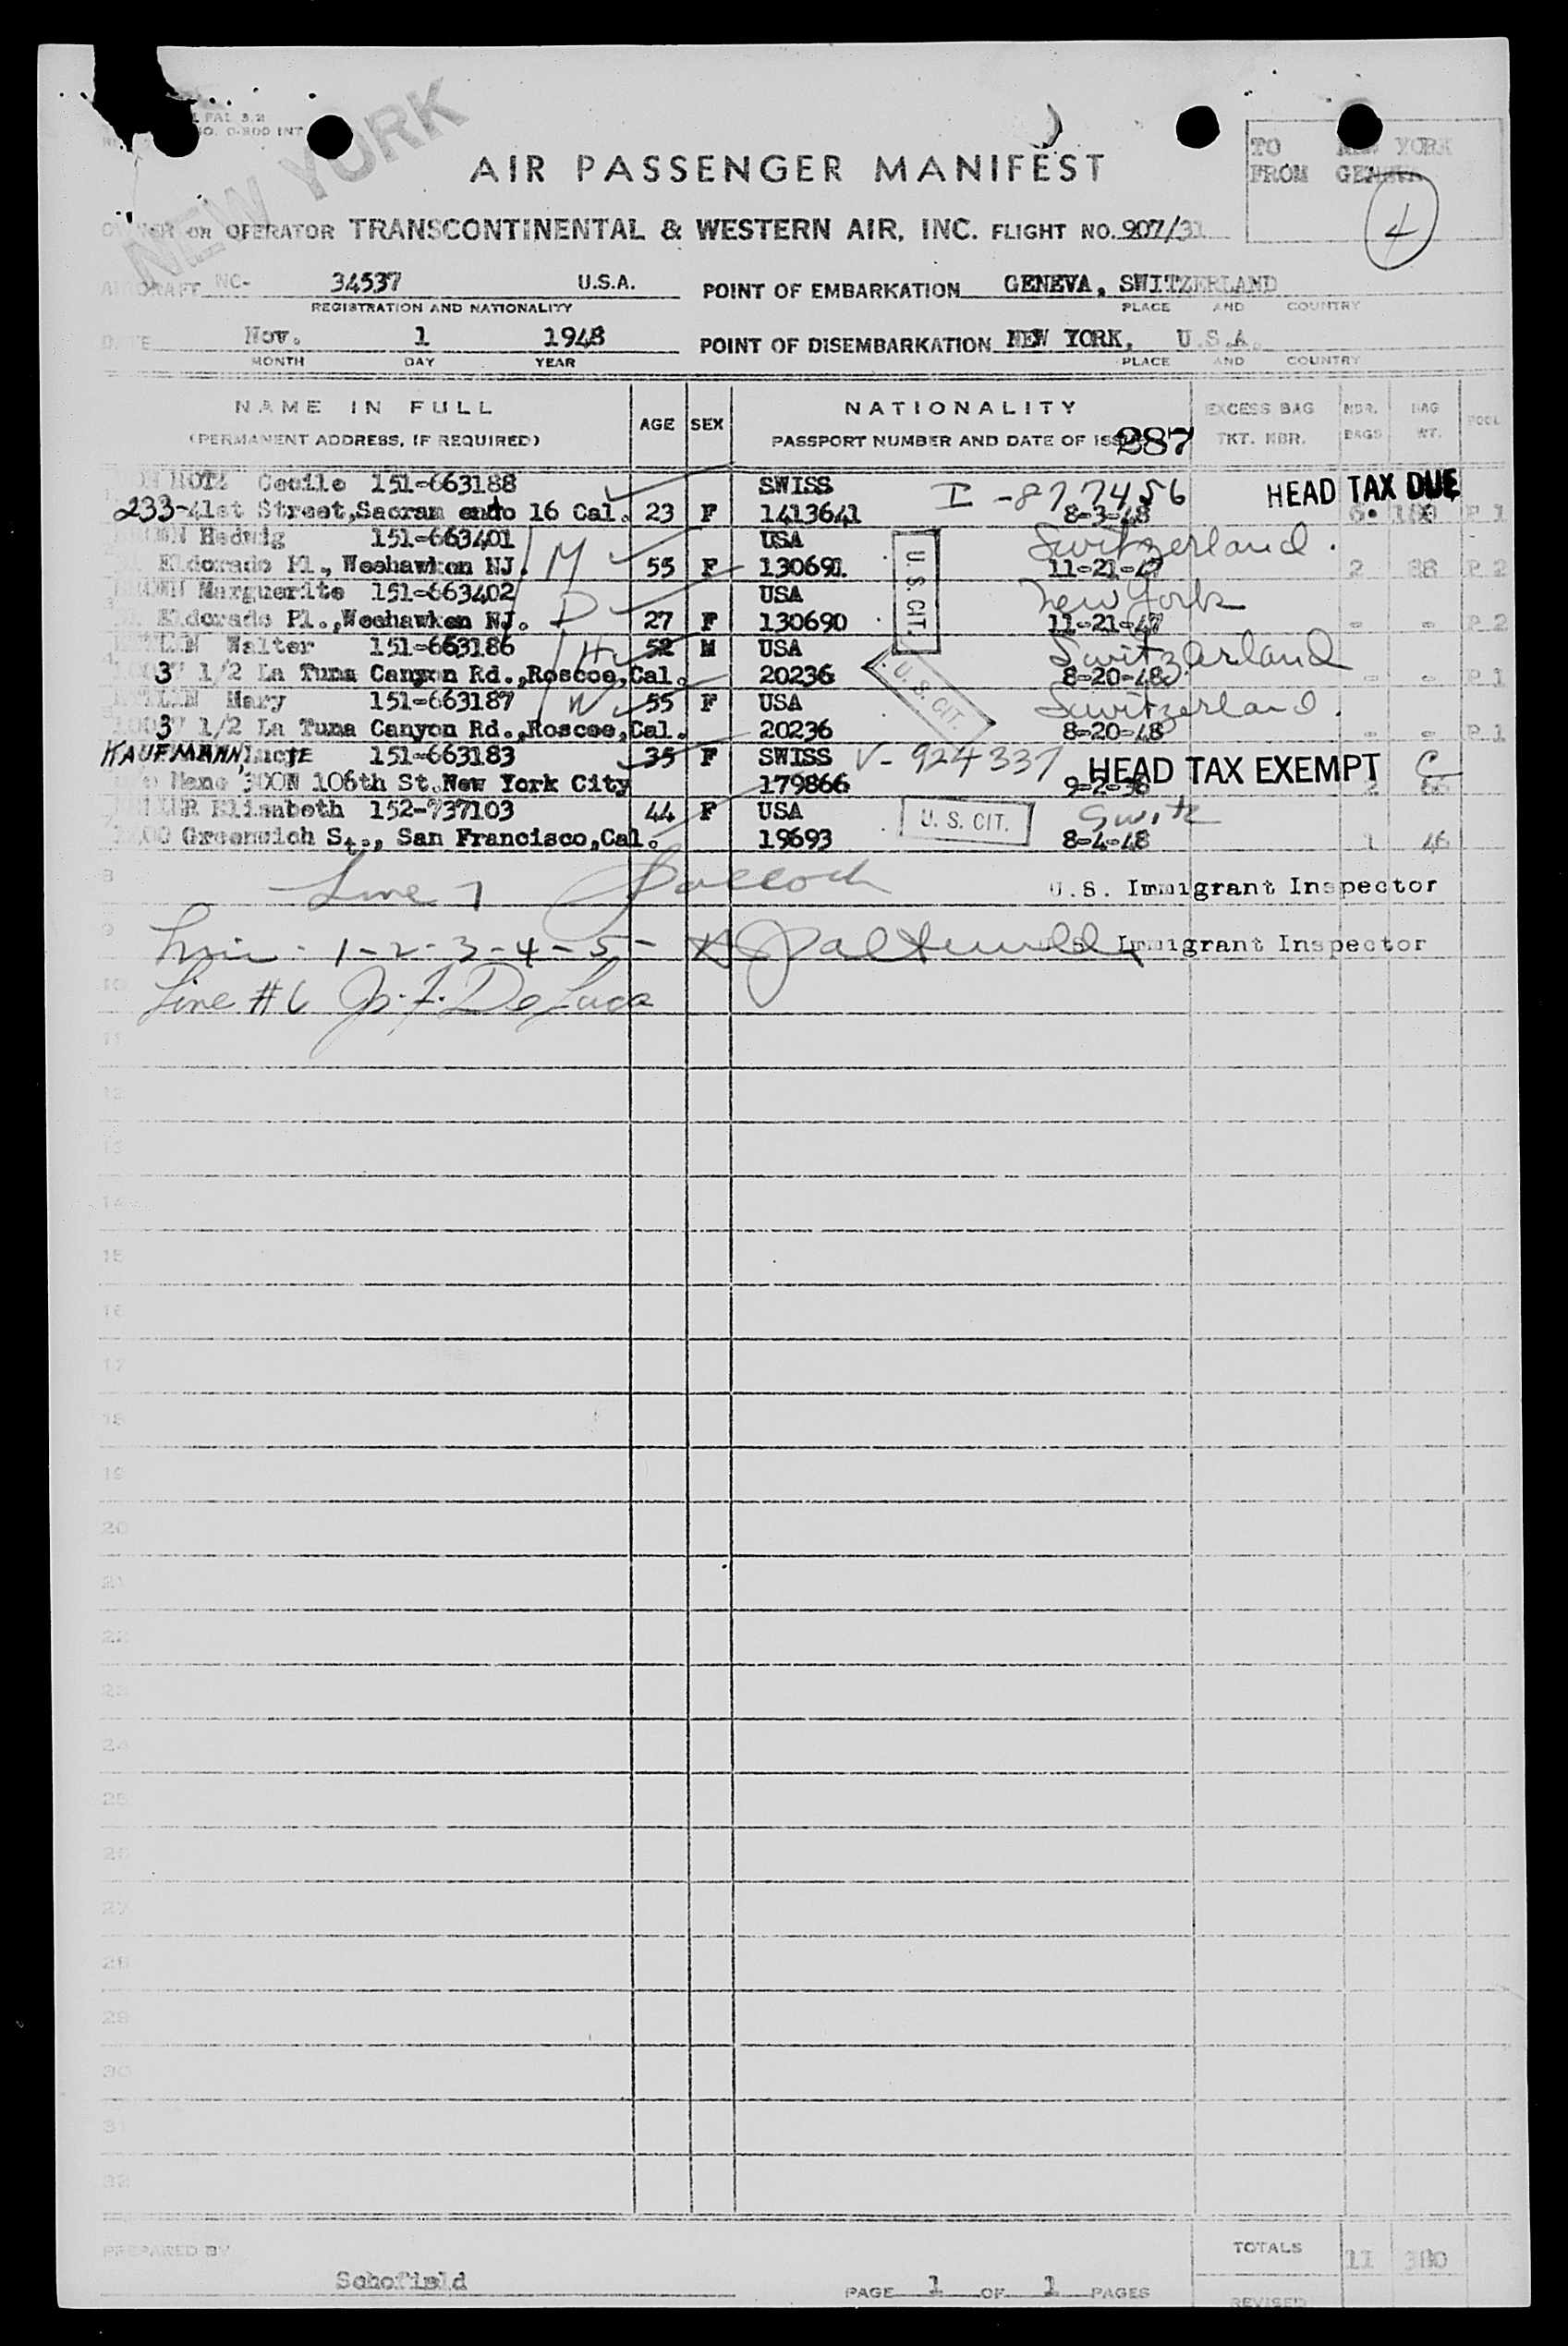 NEW YORK
TO NEW YORK
FROM GENEVA
4
AIR PASSENGER MANIFEST
OWNER OR OPERATOR TRANSCONTINENTAL & WESTERN AIR, INC. FLIGHT NO. 907/31
AIRCRAFT NC- 34537 U.S.A. POINT OF EMBARKATION GENEVA, SWITZERLAND
REGISTRATION AND NATIONALITY PLACE AND COUNTRY
DATE Nov. 1 1948 POINT OF DISEMBARKATION NEW YORK, U.S.A.
MONTH DAY YEAR PLACE AND COUNTRY
NAME IN FULL AGE SEX NATIONALITY EXCESS BAG NBR. BAG POOL
(PERMANENT ADDRESS, IF REQUIRED) PASSPORT NUMBER AND DATE OF 287 TKT. NBR. BAGS WT.
Cecile 151-663188 SWISS I-877456 HEAD TAX DUE
233-41st Street, Sacram ento 16 Cal. 23 F 1413641 8-3-48 P 1
BROWN Hedwig 151-663401 M USA Switzerland.
Eldorado Pl., Weehawken NJ. 55 F 130691 U. S. CIT. 11-21-47 2 88 P 2
BROWN Marguerite 151-663402 D USA New York
Eldorado Pl., Weehawken NJ. 27 F 130690 11-21-47 - - P 2
Walter 151-663186 H 52 M USA Switzerland
3 1/2 La Tuna Canyon Rd., Roscoe, Cal. 20236 U. S. CIT. 8-20-48 - - P 1
Mary 151-663187 W 55 F USA Switzerland.
3 1/2 La Tuna Canyon Rd., Roscoe, Cal. 20236 8-20-48 - - P 1
KAUFMANN 151-663183 35 F SWISS V-924337 HEAD TAX EXEMPT C
106th St. New York City 179866 9-2-38 2
Elisabeth 152-737103 44 F USA U. S. CIT. Switz
Greenwich St., San Francisco, Cal. 19693 8-4-48 1 46
8 Line 7 U.S. Immigrant Inspector
9 1-2-3-4-5- Immigrant Inspector
10 Line #6 De Luca
11
12
13
14
15
16
17
18
19
20
21
22
23
24
25
26
27
28
29
30
31
32
PREPARED BY Schofield
PAGE 1 OF 1 PAGES
TOTALS 11 380
REVISED